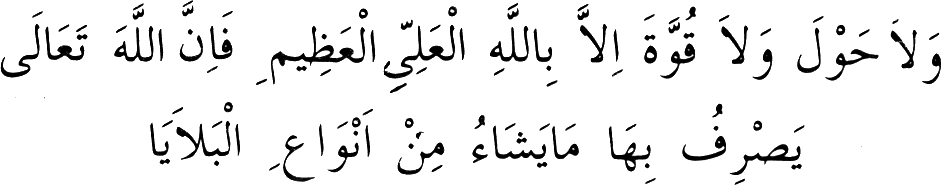 وَلاَ حَوْلَ وَلاَ قُوَّةَ اِلاَّ بِاللَّهِ الْعَلِيِّ الْعَظِيمِ فَاِنَّ اللَّهَ تَعَالَى
يَصْرِفُ بِهَا مَايَشَاءُ مِنْ اَنْوَاعِ الْبَلاَيَا